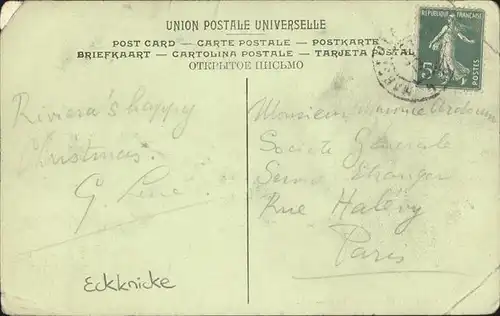 UNION POSTALE UNIVERSELLE
POST CARD — CARTE POSTALE — POSTKARTE
BRIEFKAART — CARTOLINA POSTALE — TARJETA POSTAL
ОТКРЫТОЕ ПИСЬМО
RÉPUBLIQUE FRANÇAISE
5 POSTES
Riviera's happy
Christmas.
G.
Eckknicke
Monsieur Maurice
Societe Générale
Etranger
Rue Halévy
Paris